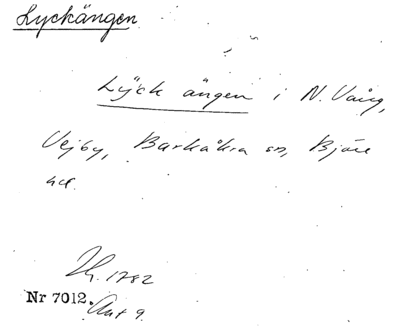 Lyckängen
Lÿck ängen i N. Vång,
Vejby, Barkåkra sn, Bjäre
hd.
1782
Nr 7012. Akt 9.